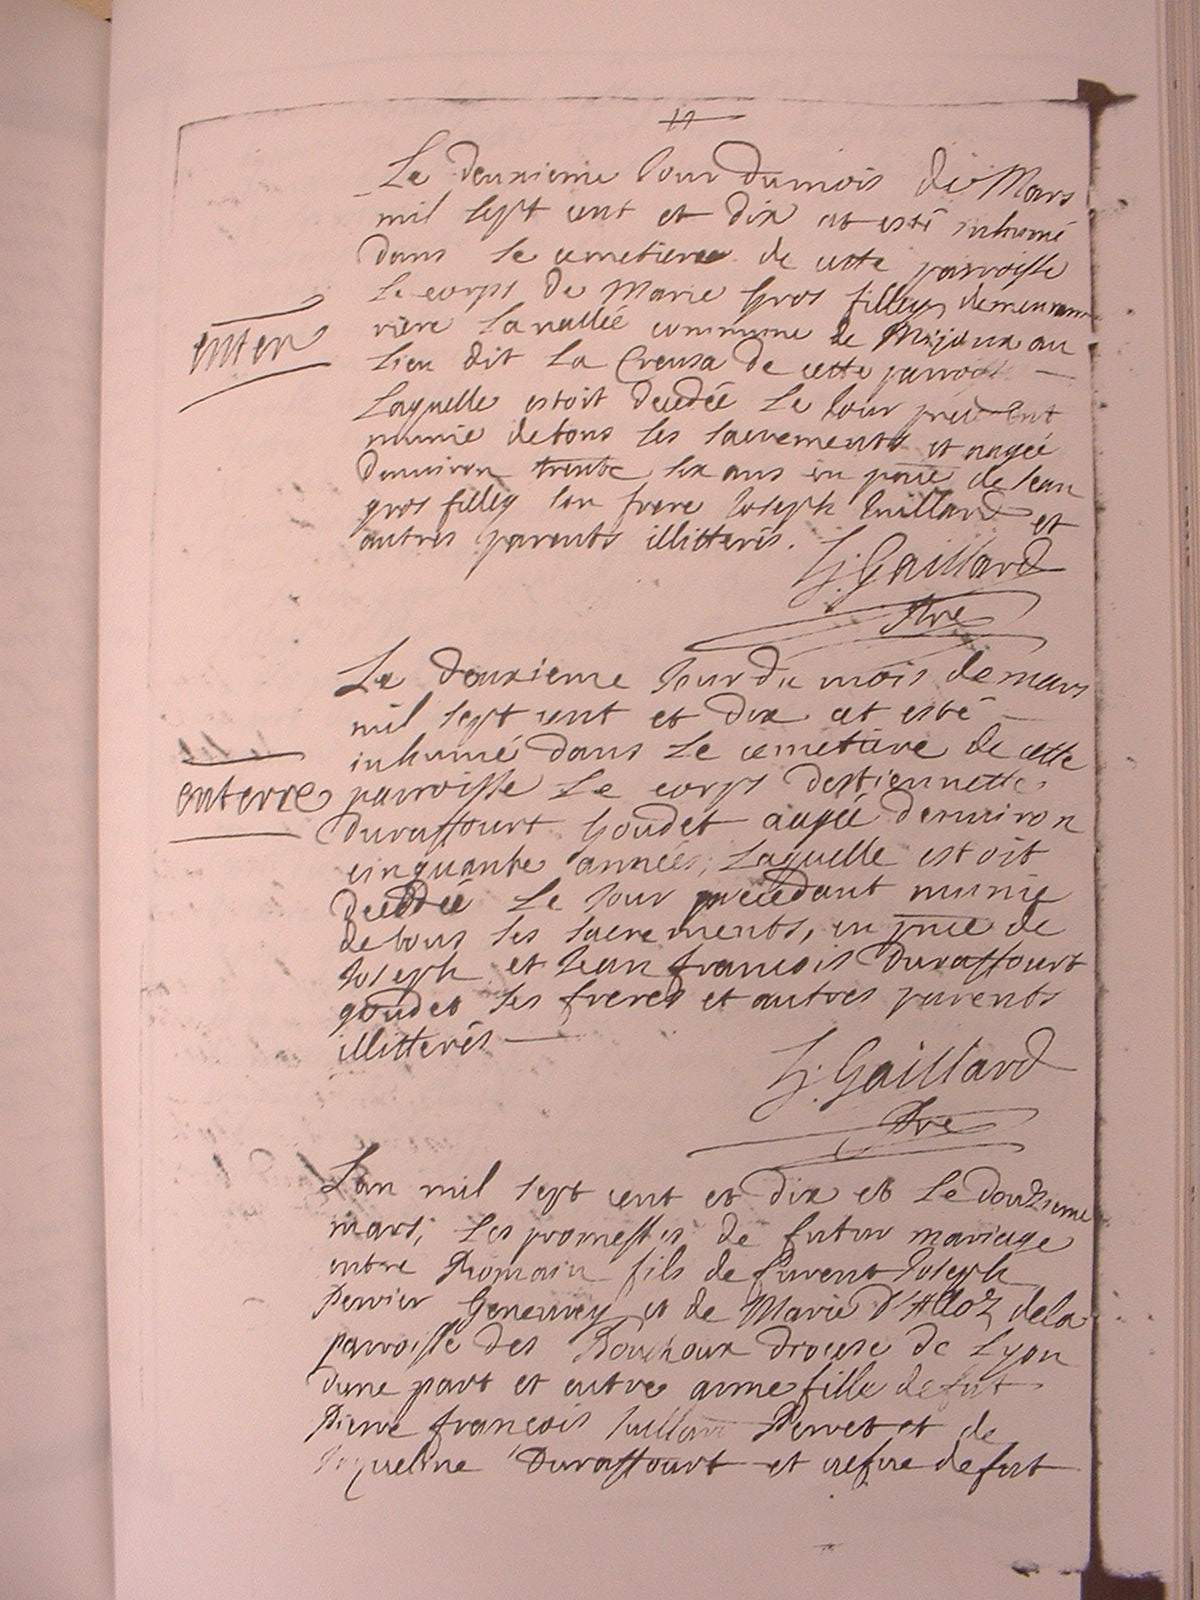 17
Le deuxieme Jour du mois de Mars
mil sept cent et dix at esté inhumé
dans le cemetiere de cette parroisse
le corps de Marie Gros filley demeurant
riere la vallée commune de Mijoux au
lieu dit La Creusa de cette parroisse
enterr
Laquelle estoit decedée le Jour precedent
munie de tous les sacrements et aagée
denviron trente six ans en pnce de Jean
gros filley son frere Joseph Juillard et
autres parents illitterés.
h: Gaillard
Ptre
Le deuxieme Jour du mois de mars
mil sept cent et dix at esté
inhumé dans le cemetiere de cette
enterre
parroisse Le corps destiennette
Duraffourt Goudet aagée denviron
cinquante années, Laquelle estoit
decedée Le Jour precedant munie
de tous les sacrements, en pnce de
Joseph et Jean francois Duraffourt
goudet ses freres et autres parents
illitterés
h: Gaillard
Ptre
Lan mil sept cent et dix et le douzieme
mars, les promesses de futur mariage
entre Romain fils de furent Joseph
Pervier Genevrey et de Marie d'Alloz de la
parroisse des Bouchoux diocese de Lyon
dune part et entre anne fille de fut
Pierre françois Juillard Perret et de
Jaqueline Duraffourt et relfue de fut